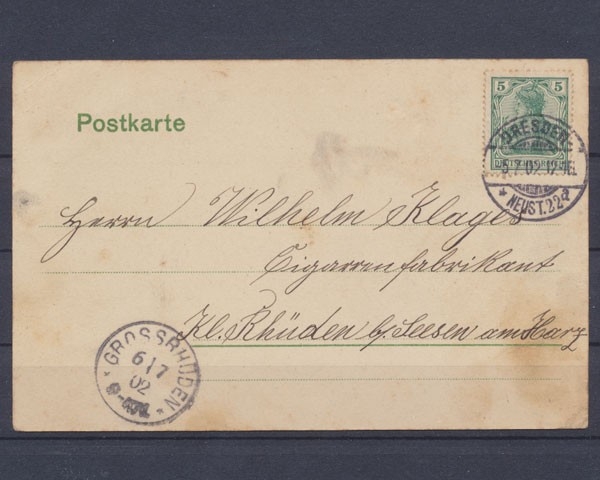 5 5
Postkarte
DRESDEN
5.7.02.12-1N.
* NEUST.22 a
Herrn Wilhelm Klages
Cigarrenfabrikant
Kl. Rhüden b/ Seesen am Harz
GROSSRHÜDEN
6/7
02